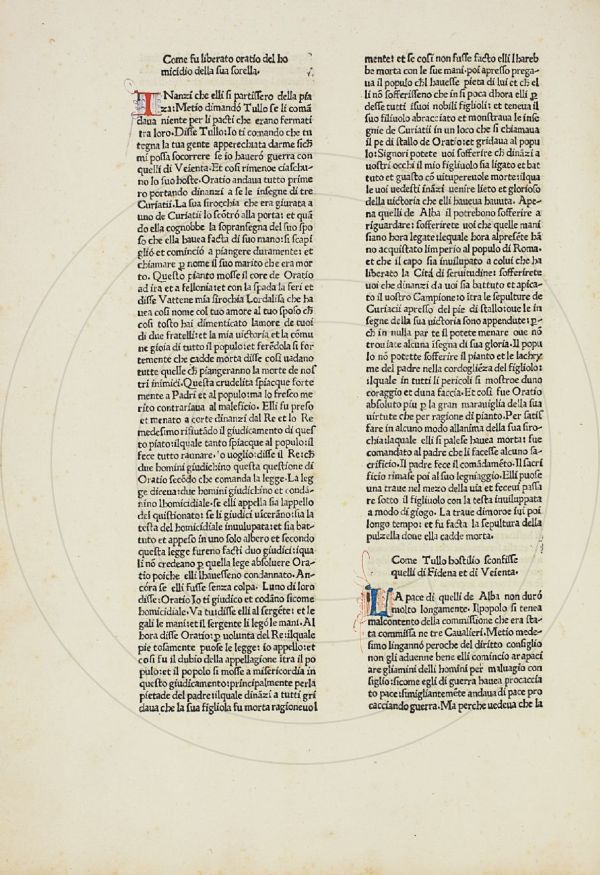 Come fu liberato oratio del ho
micidio della sua sorella.
INanzi che elli si partissero della pia
za: Metio dimandó Tullo se li comã
daua niente per li pacti che erano fermati
tra loro. Disse Tullo: Io ti comando che tu
tegna la tua gente apperechiata darme sich
mi possa socorrere se io haueró guerra con
quelli di Veienta. Et cosi rimenoe ciaschu
no lo suo hoste. Oratio andaua tutto prime
ro portando dinanzi a se le insegne di tre
Curiatii. La sua sirocchia che era giurata a
uno de Curiatii lo scõtró alla porta: et quã
do ella cognobbe la sopransegna del suo spo
so che ella hauea facta di suo mano: si scapi
glió et cominció a piangere duramente: et
chiamare p nome il suo marito che era mor
to. Questo pianto mosse il core de Oratio
ad ira et a fellonia: et con la spada la feri et
disse Vattene mia sirochia Lordalisa che ha
uea cosi nome col tuo amore al tuo sposo ch
cosi tosto hai dimenticato lamore de tuoi
di due fratelli: et la mia uictoria et la cõmu
ne gioia di tutto il populo: et ferẽdola si for
temente che cadde morta disse cosi uadano
tutte quelle ch piangeranno la morte de nos
tri inimici. Questa crudelita spiacque forte
mente a Padri et al populo: ma lo fresco me
rito contrariaua al maleficio. Elli fu preso
et menato a corte dinanzi dal Re et lo Re
medesimo rifiutãdo il giudicamento di ques
to piato: ilquale tanto spiacque al populo: il
fece tutto raunare. Io uoglio: disse il Re: ch
due homini giudichino questa questione di
Oratio secõdo che comanda la legge. La leg
ge diceua: due homini giudichino et condã
nino lhomicidiale. se elli appella sia lappello
del quistionato: se li giudici uicerãno: sia la
testa del homicidiale inuulupata: et sia bat
tuto et appeso in uno solo albero et secondo
questa legge fureno facti duo giudici: iqua
li nõ credeano p quella lege absoluere Ora
tio poiche elli lhauesseno condannato. An
córa se elli fusse senza colpa. Luno di loro
disse: Oratio Io ti giudico et codãno sicome
homicidiale. Va tu: disse elli al sergẽte: et le
gali le mani: et il sergente li legó le mani. Al
hora disse Oratio: p uolunta del Re: ilquale
pie tosamente puose le legge: io appello: et
cosi fu il dubio della appellagione itra il po
pulo: et il popolo si mosse a misericordia in
questo giudicamento: principalmente perla
pietade del padre: ilquale dinãzi a tutti gri
daua che la sua figliola fu morta ragioneuol
mente: et se cosi non fusse facto elli lhareb
be morta con le sue mani. poi apresso prega
ua il popolo chl hauesse pieta di lui et ch el
li nõ sofferisseno che in si poca dhora elli p
desse tutti isuoi nobili figlioli: et teneua il
suo filiuolo abracciato et monstraua le inse
gnie de Curiatii in un loco che si chiamaua
il pe di stallo de Oratio: et gridaua al popu
lo: Signori potete uoi sofferire ch dinãzi a
uostri occhi il mio figliuolo sia ligato et bat
tuto et guasto cõ uituperuole morte: ilqua
le uoi uedesti inãzi uenire lieto et glorioso
della uictoria che elli haueua hauuta. Ape-
na quelli de Alba il potrebono sofferire a
riguardare: sofferirete uoi che quelle mani
siano hora legate: lequale hora alpresẽte hã
no acquistato limperio al populo di Roma.
et che il capo sia inuilupato a colui che ha
liberato la Citá di seruitudine: sofferirete
uoi che dinanzi da uoi sia battuto et apica-
to il uostro Campione: itra le sepulture de
Curiacii apresso del pie di stallo: oue le in
segne della sua uictoria sono appendute: p-
ch in nulla par te il potete menare oue nõ
trouiate alcuna insegna di sua gloria. Il popu
lo nõ potette sofferire il pianto et le lachry
me del padre nella cordogliẽza del figliolo:
ilquale in tutti li pericoli si mostroe duno
coraggio et duna faccia. Et cosi fue Oratio
absoluto piu p la gran marauiglia della sua
uirtute che per ragione di pianto. Per satis
fare in alcuno modo allanima della sua siro-
chia: laquale elli si palese hauea morta: fue
comandato al padre che li facesse alcuno sa-
crificio. Il padre fece il comãdamẽto. Il sacri
ficio rimase poi al suo legniaggio. Elli puose
una traue nel mezo della uia et feceui passa
re sotto il figliuolo con la testa inuiluppata
a modo di giogo. La traue dimoroe iui poi
longo tempo: et fu facta la sepultura della
pulzella doue ella cadde morta.
Come Tullo hostilio sconfisse
quelli di Fidena et di Veienta.
LA pace di quelli de Alba non duró
molto longamente. Ilpopolo si tenea
malcontento della commissione che era sta-
ta commissa ne tre Caualieri. Metio mede-
simo linganno peroche del diritto consiglio
non gli aduenne bene elli comincio arapaci
are gliamini delli homini per maluagio con
siglio: sicome egli di guerra hauea procaccia
to pace: simigliantemẽte andaua di pace pro
cacciando guerra. Ma perche uedeua che la